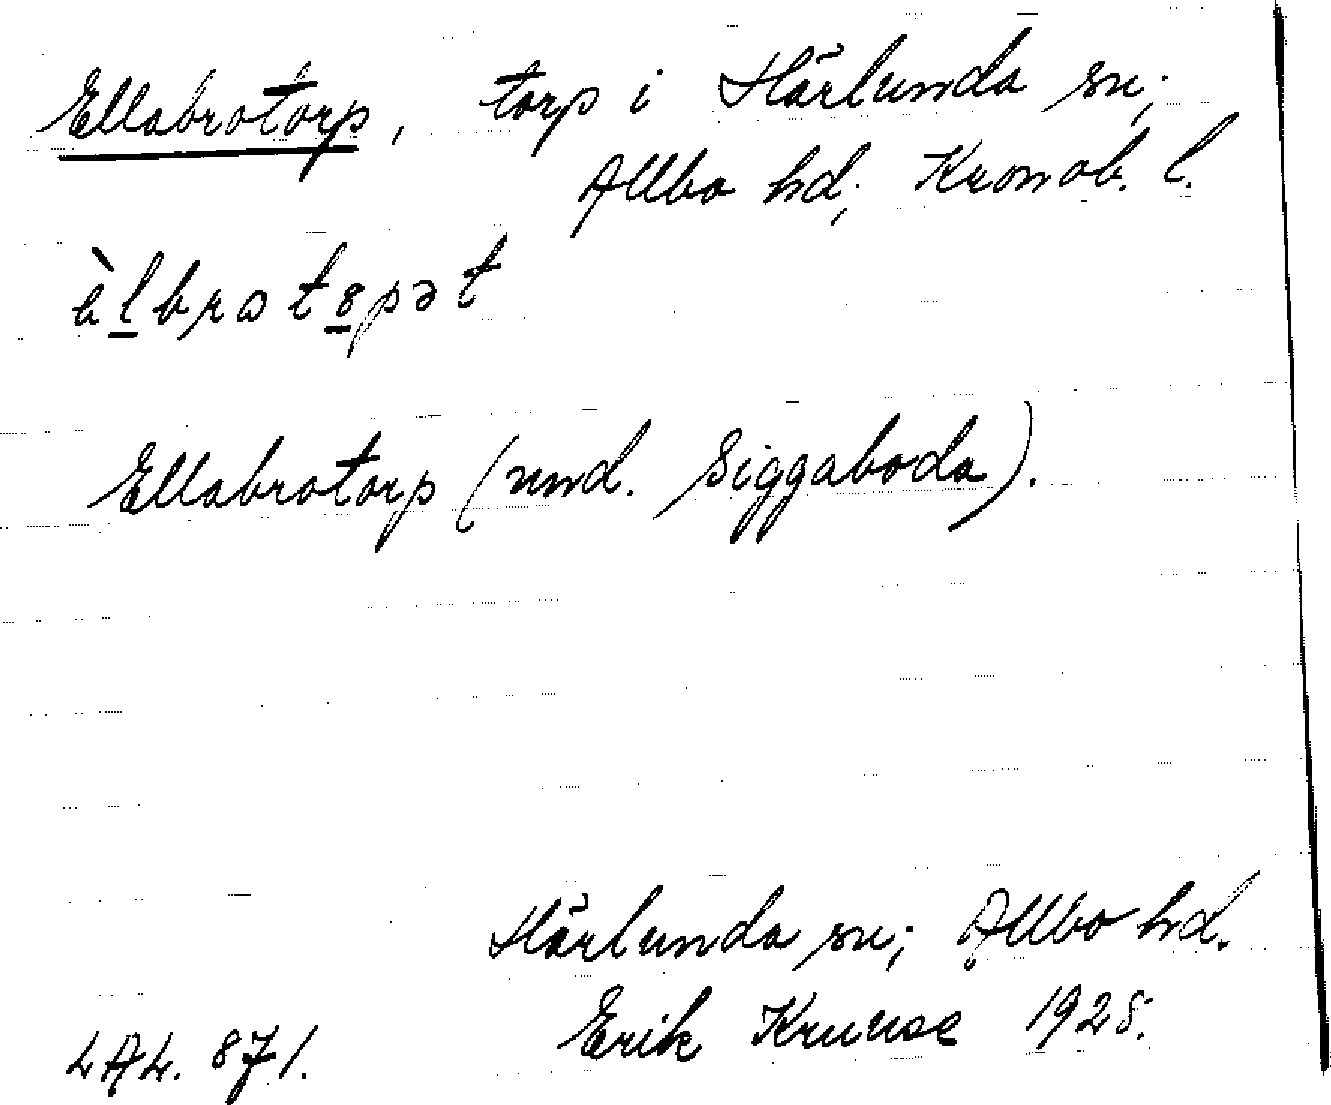 Ellabrotorp, torp i Härlunda sn;
Allbo hd; Kronob. l.
Ellabrotorp (und. Siggaboda).
Härlunda sn; Allbo hd.
LAL. 871. Erik Kruuse 1928.